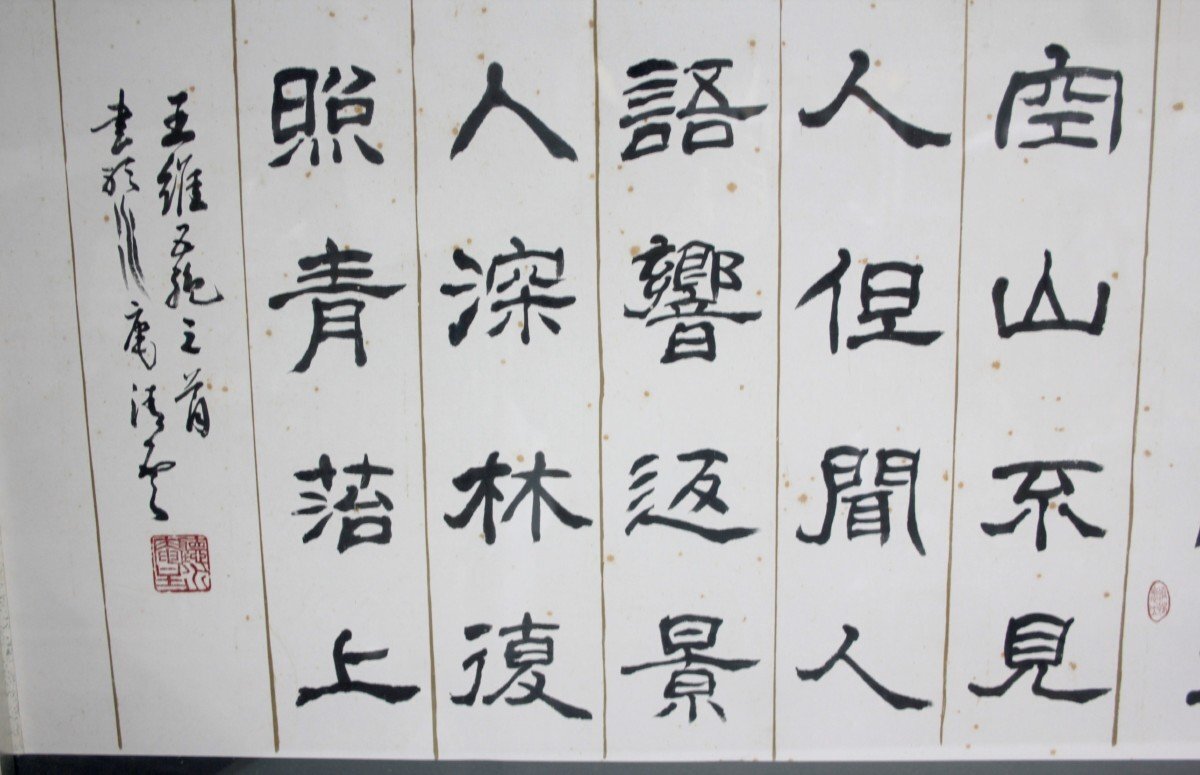 空山不見
人但聞人
語響返景
入深林復
照青菭上
王維五絕之首
書於